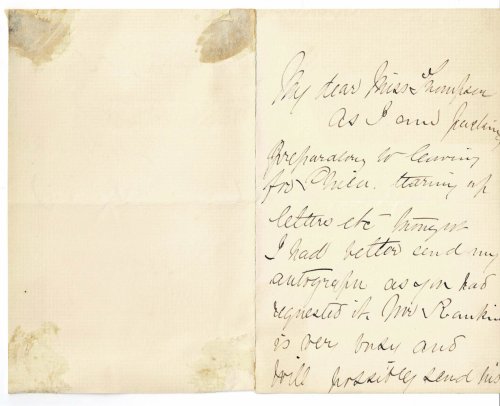 My dear Miss Thompson
As I am packing
preparatory to leaving
for Phila. tearing up
letters etc thought
I had better send my
autograph as you had
requested it. Mr Rankin
is very busy and
will possibly send his